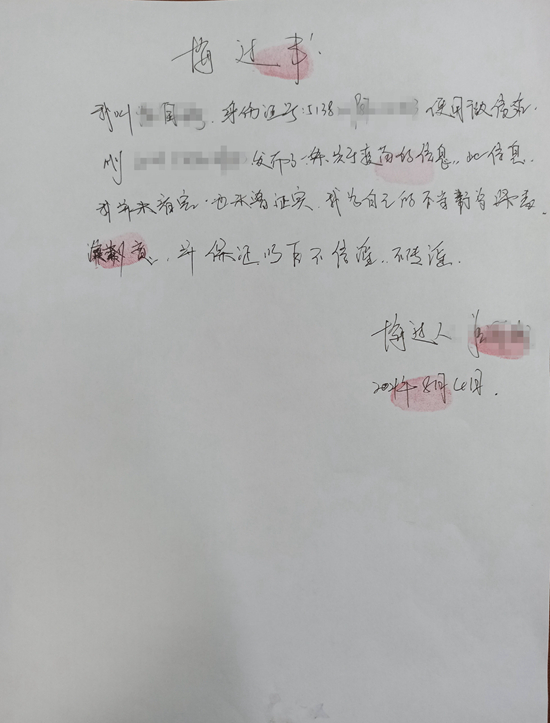 悔过书
我叫 身份证号:5138 使用微信在
发布了一条关于疫情的信息,此信息
我并未看实,也未得证实,我为自己的不当行为深感
并保证以后不信谣,不传谣.
悔过人
2021年8月4日.